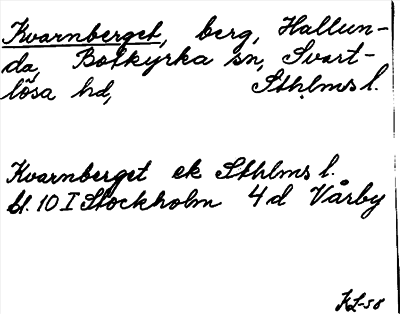 Kvarnberget, berg, Hallun-
da, Botkyrka sn, Svart-
lösa hd, Sthlms l.
Kvarnberget ek Sthlms l.
bl. 10 I Stockholm 4d Vårby
KL-58